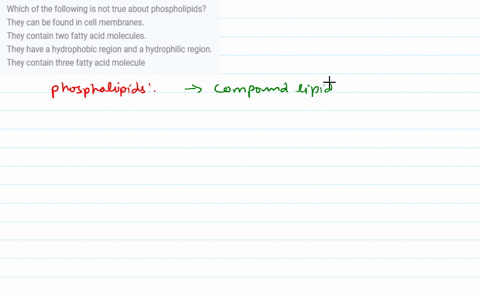 Which of the following is not true about phospholipids?
They can be found in cell membranes.
They contain two fatty acid molecules.
They have a hydrophobic region and a hydrophilic region.
They contain three fatty acid molecule
phosphalipids:. → compound lipid